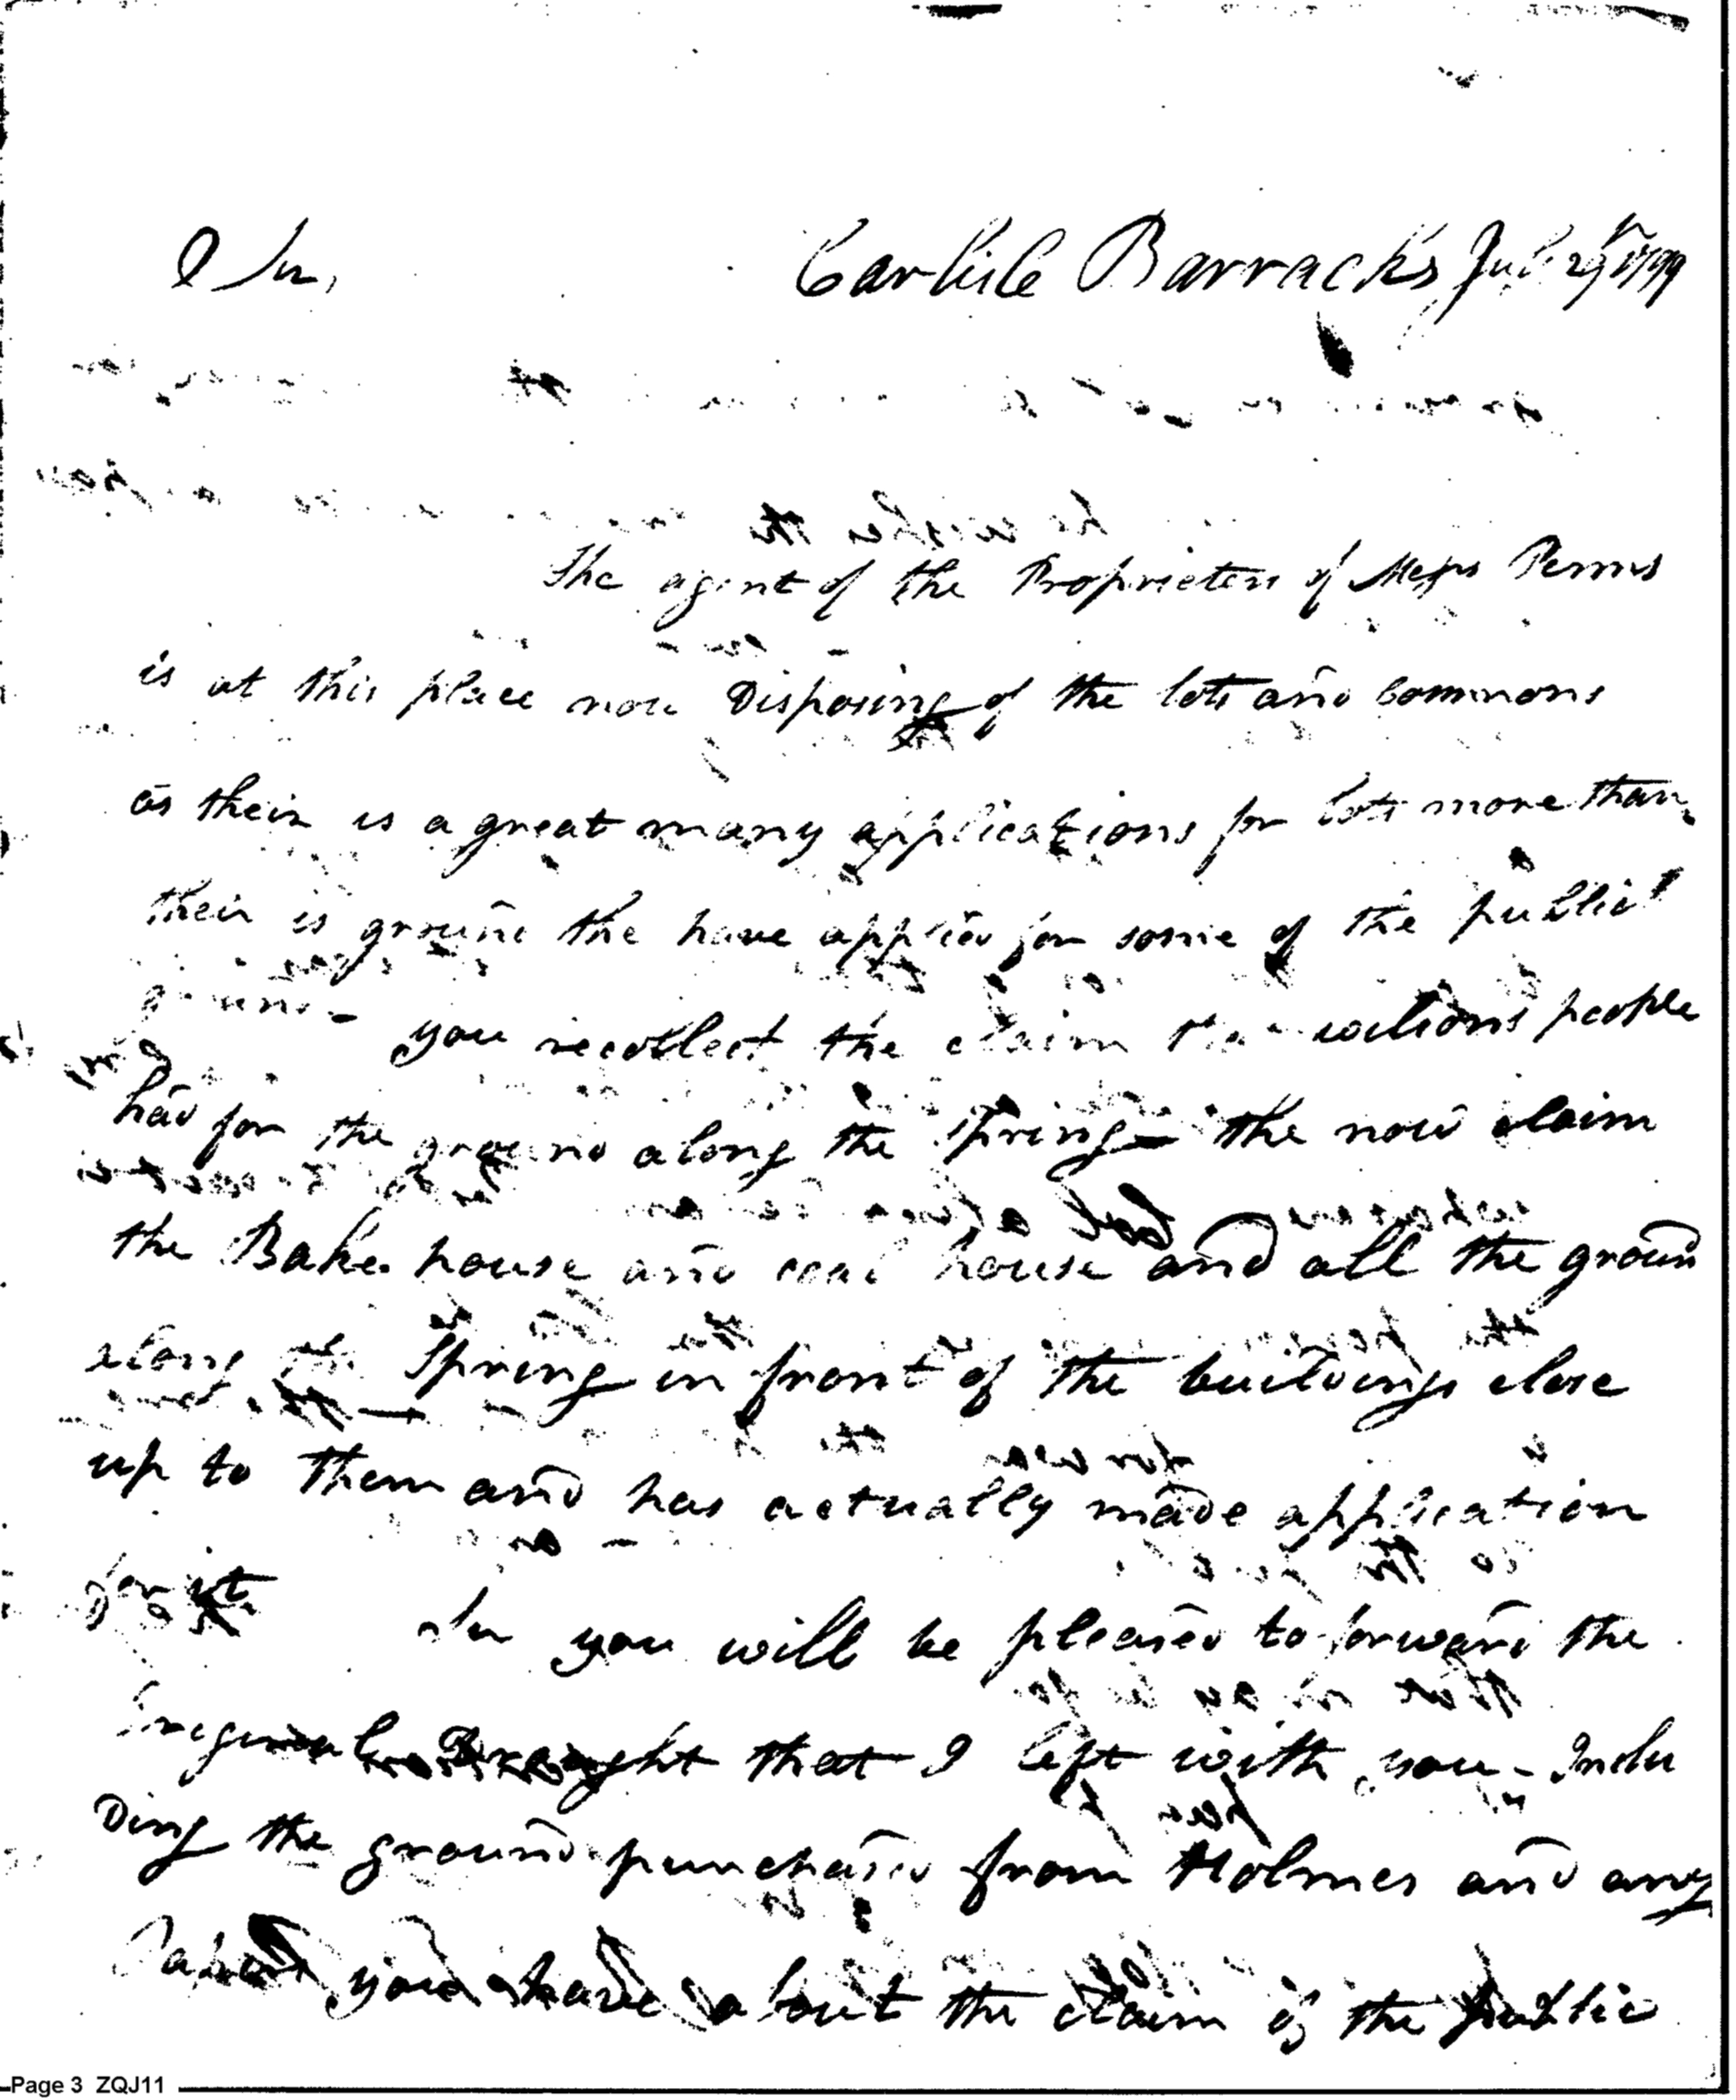 Sir,
Carlisle Barracks July 29th 1799
The agent of the Proprieters of Messrs Penns
is at this place now Disposing of the lots and Commons
as their is a great many applications for lots more than
their is ground the have applied for some of the public
ground - you recollect the claim the people
had for the ground along the Spring - the now claim
the Bake house and coal house and all the ground
along the Spring in front of the buildings close
up to them and has actually made application
for it Sir you will be pleased to forward the
Original Draught that I left with you - Inclu
Ding the ground purchased from Holmes and any
you have about the claim of the public
Page 3 ZQJ11